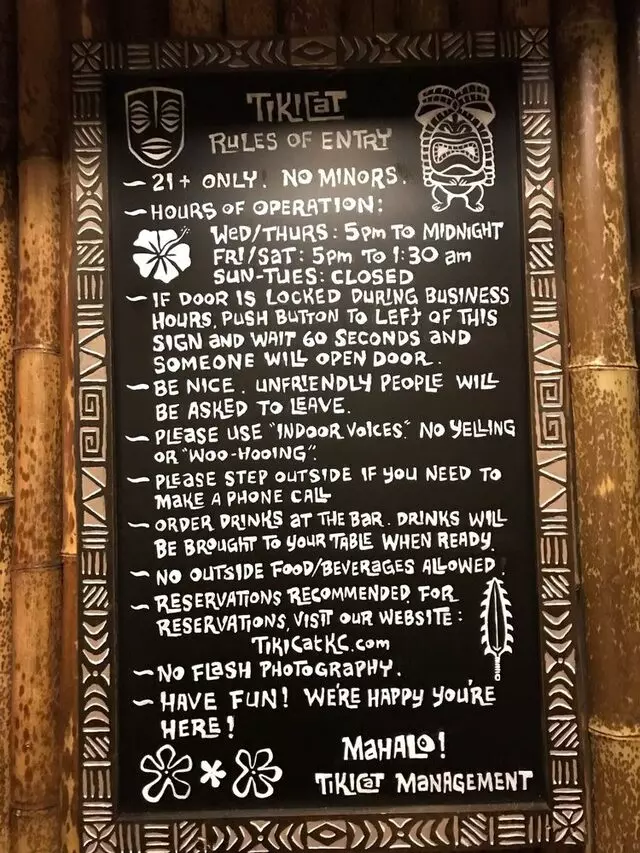 TIKICAT
RULES OF ENTRY
~ 21+ ONLY! NO MINORS.
~ HOURS OF OPERATION:
WED/THURS: 5pm TO MIDNIGHT
FRI/SAT: 5pm TO 1:30 am
SUN-TUES: CLOSED
~ IF DOOR IS LOCKED DURING BUSINESS
HOURS, PUSH BUTTON TO LEFT OF THIS
SIGN AND WAIT 60 SECONDS AND
SOMEONE WILL OPEN DOOR.
~ BE NICE. UNFRIENDLY PEOPLE WILL
BE ASKED TO LEAVE.
~ PLEASE USE "INDOOR VOICES." NO YELLING
OR "WOO-HOOING".
~ PLEASE STEP OUTSIDE IF YOU NEED TO
MAKE A PHONE CALL
~ ORDER DRINKS AT THE BAR. DRINKS WILL
BE BROUGHT TO YOUR TABLE WHEN READY.
~ NO OUTSIDE FOOD/BEVERAGES ALLOWED!
~ RESERVATIONS RECOMMENDED. FOR
RESERVATIONS, VISIT OUR WEBSITE:
TIKICATKC.com
~ NO FLASH PHOTOGRAPHY.
~ HAVE FUN! WE'RE HAPPY YOU'RE
HERE!
MAHALO!
TIKICAT MANAGEMENT